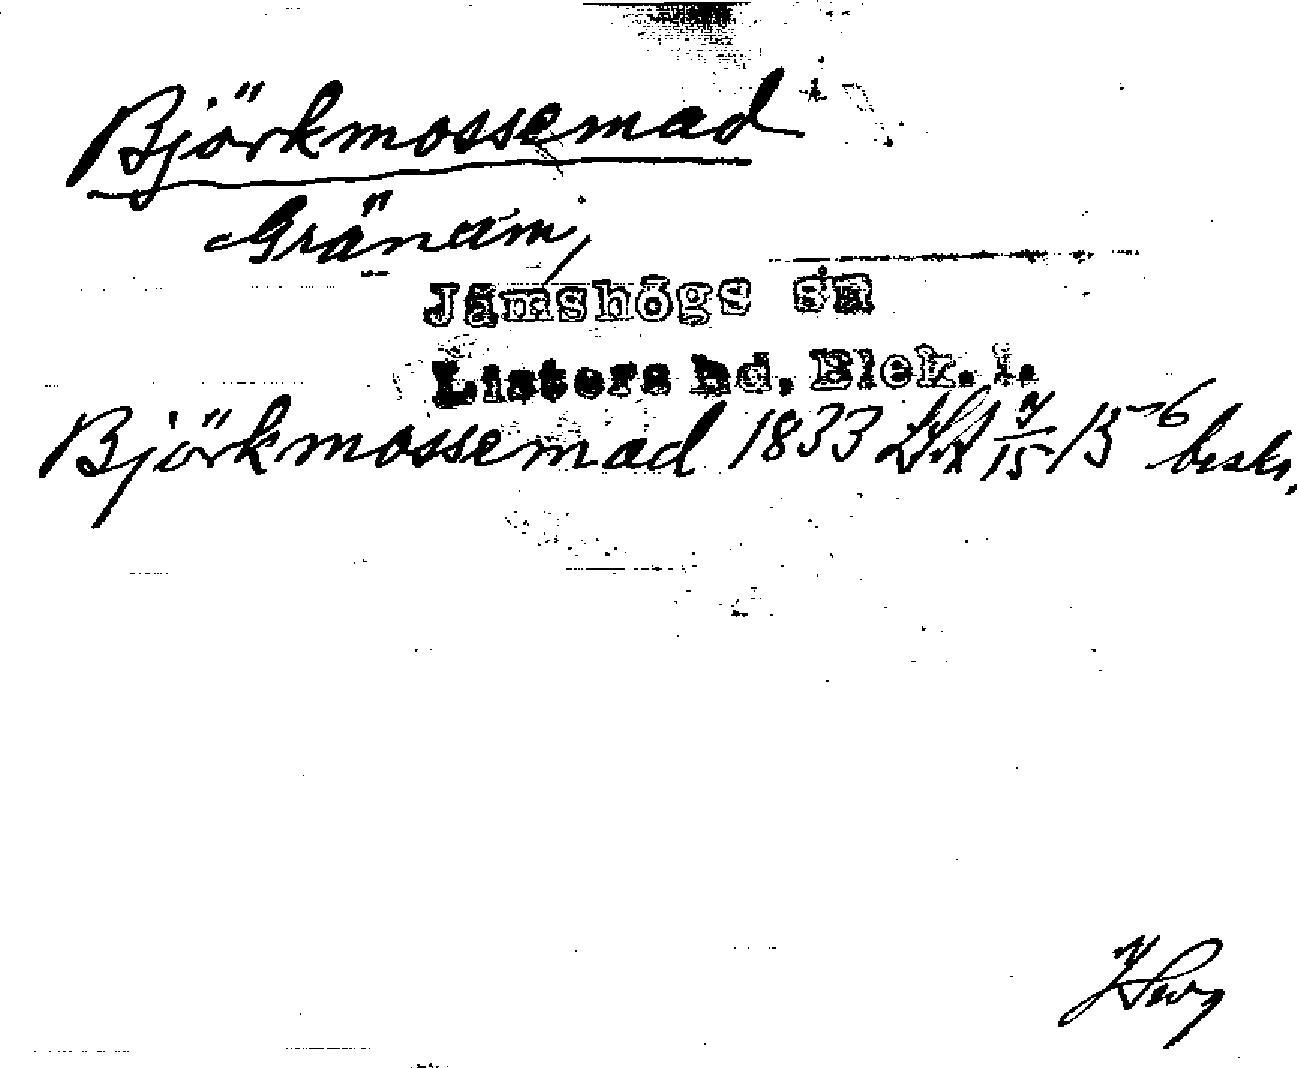 Björkmossemad
Gränum,
Jämshögs sn
Listers hd. Blek. l.
Björkmossemad 1833 LSA 7/15 15-6 beskr.